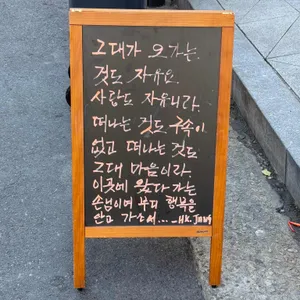 그대가 오가는
것도 자유요.
사랑도 자유니라.
떠나는 것도 구속이
없고 떠나는 것도
그대 마음이라.
이곳에 왔다 가는
손님이여 부디 행복을
안고 가소서...-HK.JANG